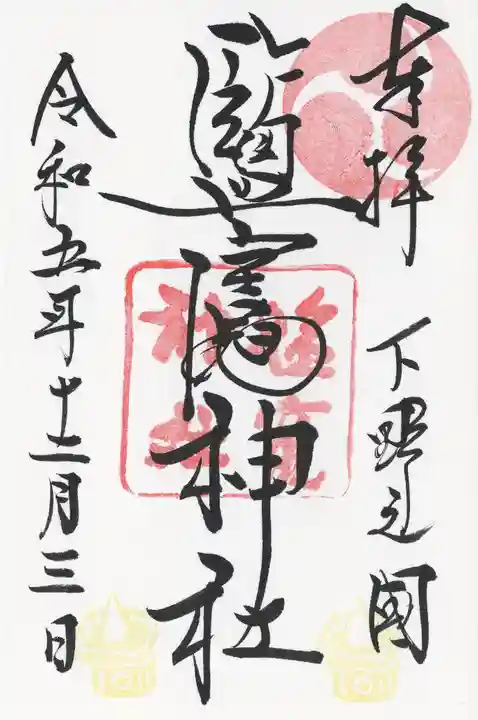 奉拝 下野之國
鹽竈神社
令和五年十二月三日